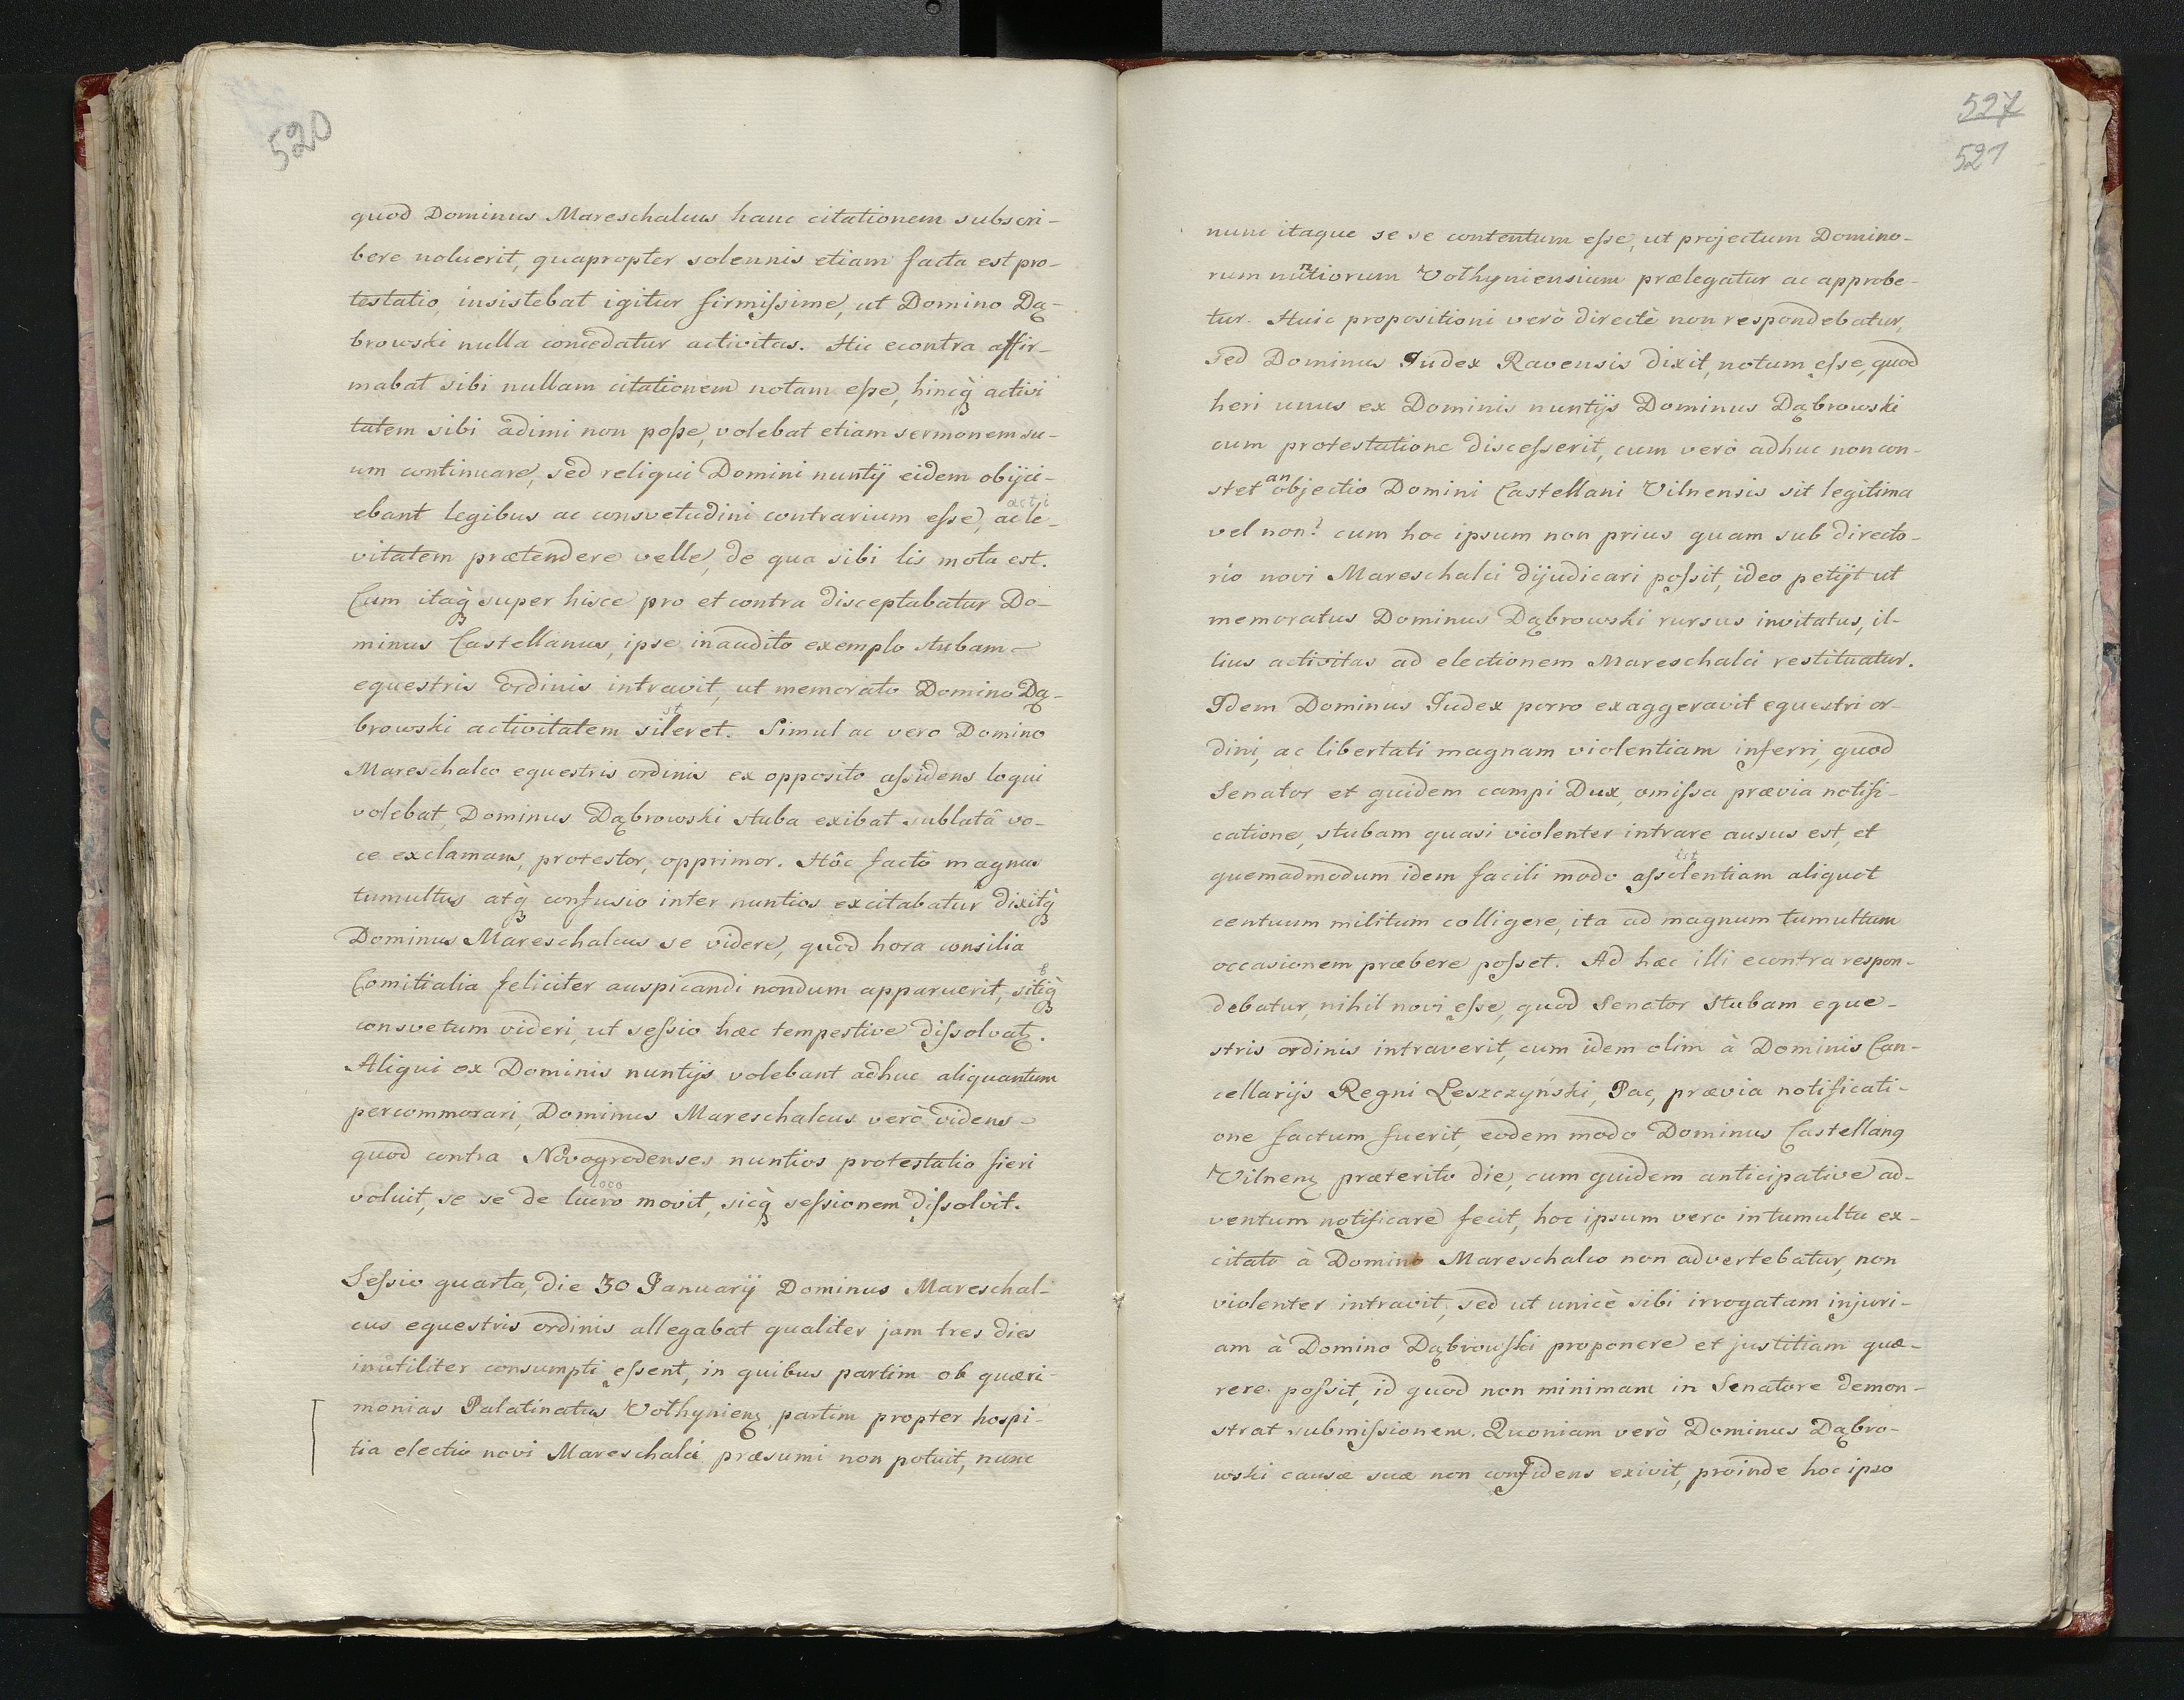 520
quod Dominus Mareschalcus hanc citationem subscri-
bere noluerit, quapropter solennis etiam facta est pro-
testatio, insistebat igitur firmissime, ut Domino Dą-
browski nulla concedatur activitas. Hic econtra affir-
mabat sibi nullam citationem notam esse, hincq̀ activi
tatem sibi adimi non posse, volebat etiam sermonem su-
um continuare, sed reliqui Domini nuntij eidem obijci-
acti
ebant legibus ac consvetudini contrarium esse, ac le-
vitatem prætendere velle, de qua sibi lis mota est.
Cum itaq̀ super hisce pro et contra disceptabatur Do-
minus Castellanus, ipse inaudito exemplo stubam
equestris ordinis intravit, ut memorato Domino Dą-
st
browski activitatem sileret. Simul ac vero Domino
Mareschalco equestris ordinis ex opposito assidens loqui
volebat, Dominus Dąbrowski stuba exibat sublatâ vo-
ce exclamans, protestor, opprimor. Hôc facto magnus
tumultus atq̀ confusio inter nuntios excitabatur dixitq̀
Dominus Mareschalcus se videre, quod hora consilia
Comitialia feliciter auspicandi nondum apparuerit, sitiq̀
consvetum videri, ut sessio hæc tempestive dissolvatꝫ.
Aliqui ex Dominis nuntijs volebant adhuc aliquantum
percommorari, Dominus Mareschalcus verò videns
quod contra Novogrodenses nuntios protestatio fieri
loco
voluit, se se de lucro movit, sicq̀ sessionem dissolvit.
Sessio quarta, die 30 Januarij Dominus Mareschal-
cus equestris ordinis allegabat qualiter jam tres dies
inutiliter consumpti essent, in quibus partim ob quæri-
monias Palatinatus Vothynienꝫ partim propter hospi-
tia electio novi Mareschalci præsumi non potuit, nunc
527
521
nunc itaque se se contentum esse, ut projectum Domino-
rum nuntiorum Vothyniensium prælegatur ac approbe-
tur. Huic propositioni verò directè non respondebatur,
sed Dominus Judex Ravensis dixit, notum esse, quod
heri unus ex Dominis nuntijs Dominus Dąbrowski
cum protestatione discesserit, cum verò adhuc non con-
stet an objectio Domini Castellani Vilnensis sit legitima
vel non? cum hoc ipsum non prius quam sub directo-
rio novi Mareschalci dijudicari possit, ideo petijt ut
memoratus Dominus Dąbrowski rursus invitatus, il-
lius activitas ad electionem Mareschalci restituatur.
Idem Dominus Judex porro exaggeravit equestri or-
dini, ac libertati magnam violentiam inferri, quod
Senator et quidem campi Dux, omissa prævia notifi-
catione, stubam quasi violenter intrare ausus est, et
ist
quemadmodum idem facili modo assolentiam aliquot
centuum militum colligere, ita ad magnum tumultum
occasionem præbere posset. Ad hæc illi econtra respon-
debatur, nihil novi esse, quod Senator stubam eque-
stris ordinis intraverit, cum idem olim à Dominis Can-
cellarijs Regni Leszczyński, Pac, prævia notificati-
one factum fuerit, eodem modo Dominus Castellanꝰ
Vilnenꝫ præterito die, cum quidem anticipative ad-
ventum notificare fecit, hoc ipsum vero in tumultu ex-
citato à Domino Mareschalco non advertebatur, non
violenter intravit, sed ut unicè sibi irrogatam injuri-
am à Domino Dąbrowski proponere et justitiam quæ-
rere possit, id quod non minimam in Senatore demon-
strat submissionem. Quoniam verò Dominus Dąbro-
wski causæ suæ non confidens exivit, proinde hoc ipso